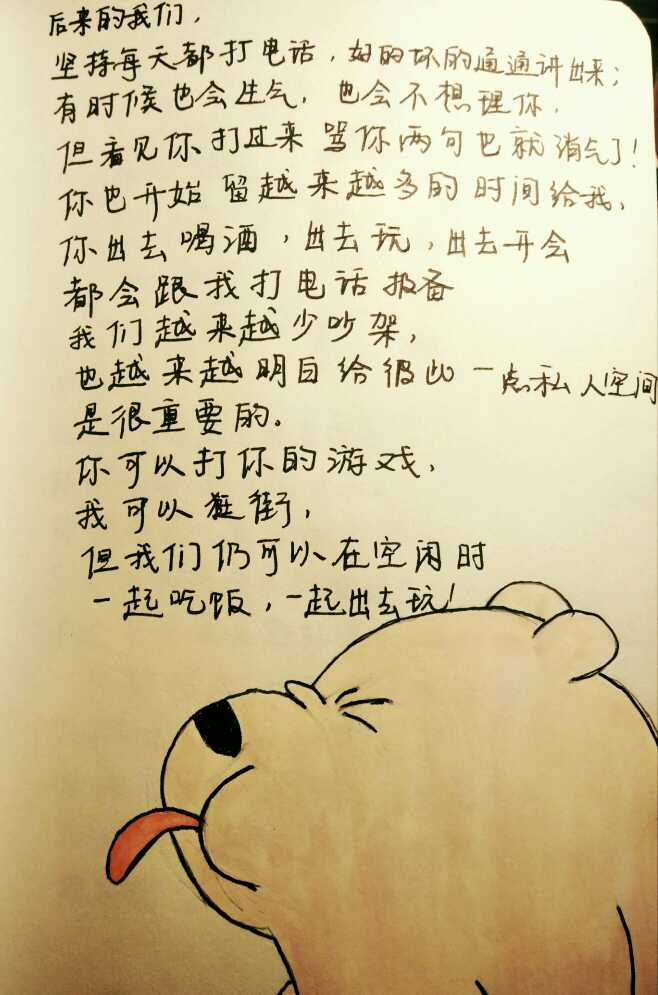 后来的我们，
坚持每天都打电话，好的坏的通通讲出来；
有时候也会生气，也会不想理你，
但看见你打过来 骂你两句也就消气了！
你也开始留越来越多的时间给我，
你出去喝酒，出去玩，出去开会
都会跟我打电话报备
我们越来越少吵架，
也越来越明白给彼此一点私人空间
是很重要的。
你可以打你的游戏，
我可以逛街，
但我们仍可以在空闲时
一起吃饭，一起出去玩！